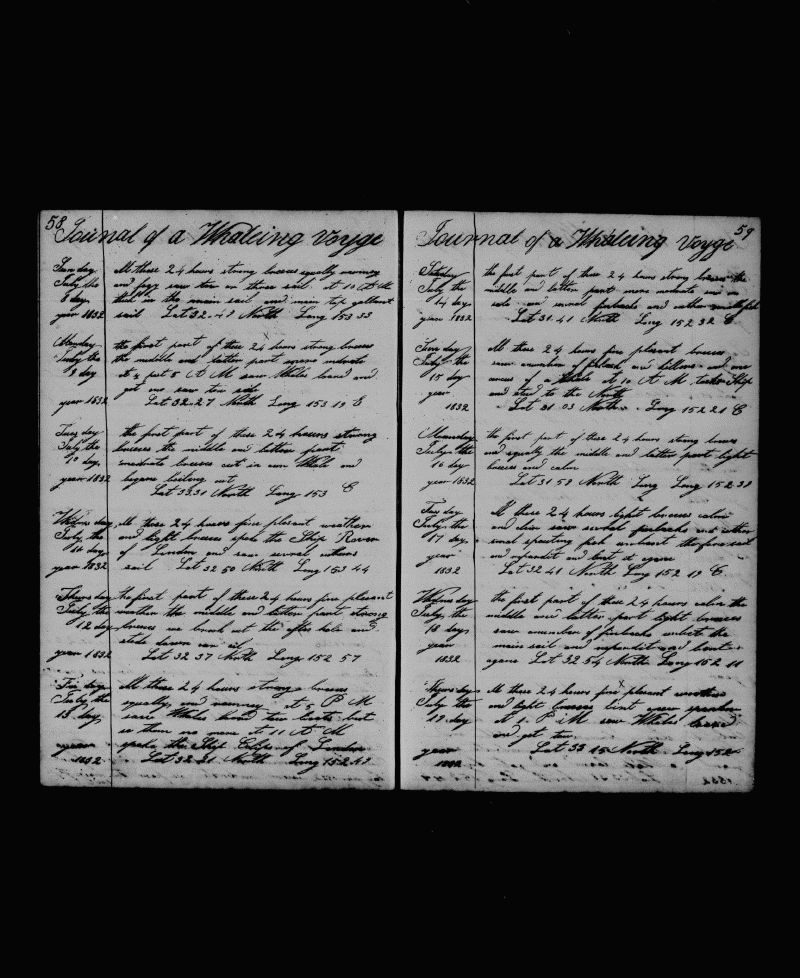 58
Journal of a Whaleing Voyge
Sun day
July the
8 day
year 1832
All these 24 hours strong breeses equally
and fogy saw two or three sail at 11 A the
in the main sail and main top gallant
sail Lat 32.48 North Long 153 33
Monday
July the
9 day
year 1832
the first part of these 24 hours strong breeses
the middle and latter part more moderate
at past 5 A M saw Whales loard and
got one saw two sail
Lat 32.27 North Long 153 19 E
Tues day
July the
10 day
year 1832
the first part of these 24 hours strong
breeses the middle and latter part
moderate breeses cut in our Whale and
began boiling out
Lat 33.31 North Long 153 E
Wednes day
July the
11 day
year 1832
All these 24 hours fine plesant weather
and light breeses spoke the Ship Rover
of London and saw several others
sail Lat 32 50 North Long 153 44
Thurs day
July the
12 day
year 1832
the first part of these 24 hours fine plesant
weather the middle and latter part strong
breeses we brock out the after hole and
stode down our oil
Lat 32 37 North Long 152 57
Fri day
July the
13 day
year
1832
All these 24 hours strong breeses
equally and at 5 P M
saw Whales loard two boats but
se them no more at 11 A M
spoke the Ship of London
Lat 32 21 North Long 152.43
59
Journal of a Whaleing Voyge
July the
14 day
year 1832
the first part of these 24 hours strong breeses the
middle and latter part more moderate saw a
sale and several finbacks and other
Lat 31.41 North Long 152 32 E
Sun day
July the
15 day
year
1832
All these 24 hours fine plesant breeses
saw anumber of finback and killers and one
of a Whale at 10 A M tackt Ship
and sterd to the North
Lat 31.03 North Long 152 21 E
Monday
July the
16 day
year 1832
the first part of these 24 hours strong breeses
and equally the middle and latter part light
breeses and calm
Lat 31 58 North Long Long 152 38
Tus day
July the
17 day
year
1832
All these 24 hours light breeses calm
and clear saw several finbacks and other
small spouting fish unbent the fore sail
and repardit and bent it agane
Lat 32 41 North Long 152 19 E
Wednes day
July the
18 day
year
1832
the first part of these 24 hours calm the
middle and latter part light breeses
saw anumber of finbacks unbent the
main sail and repardit and bent
agane Lat 32 54 North Long 152 11
Thurs day
July the
19 day
year
1832
All these 24 hours fine plesant weather
and light breeses bent new spanker
at 1 P M saw Whales loard
and got two
Lat 33 15 North Long 152